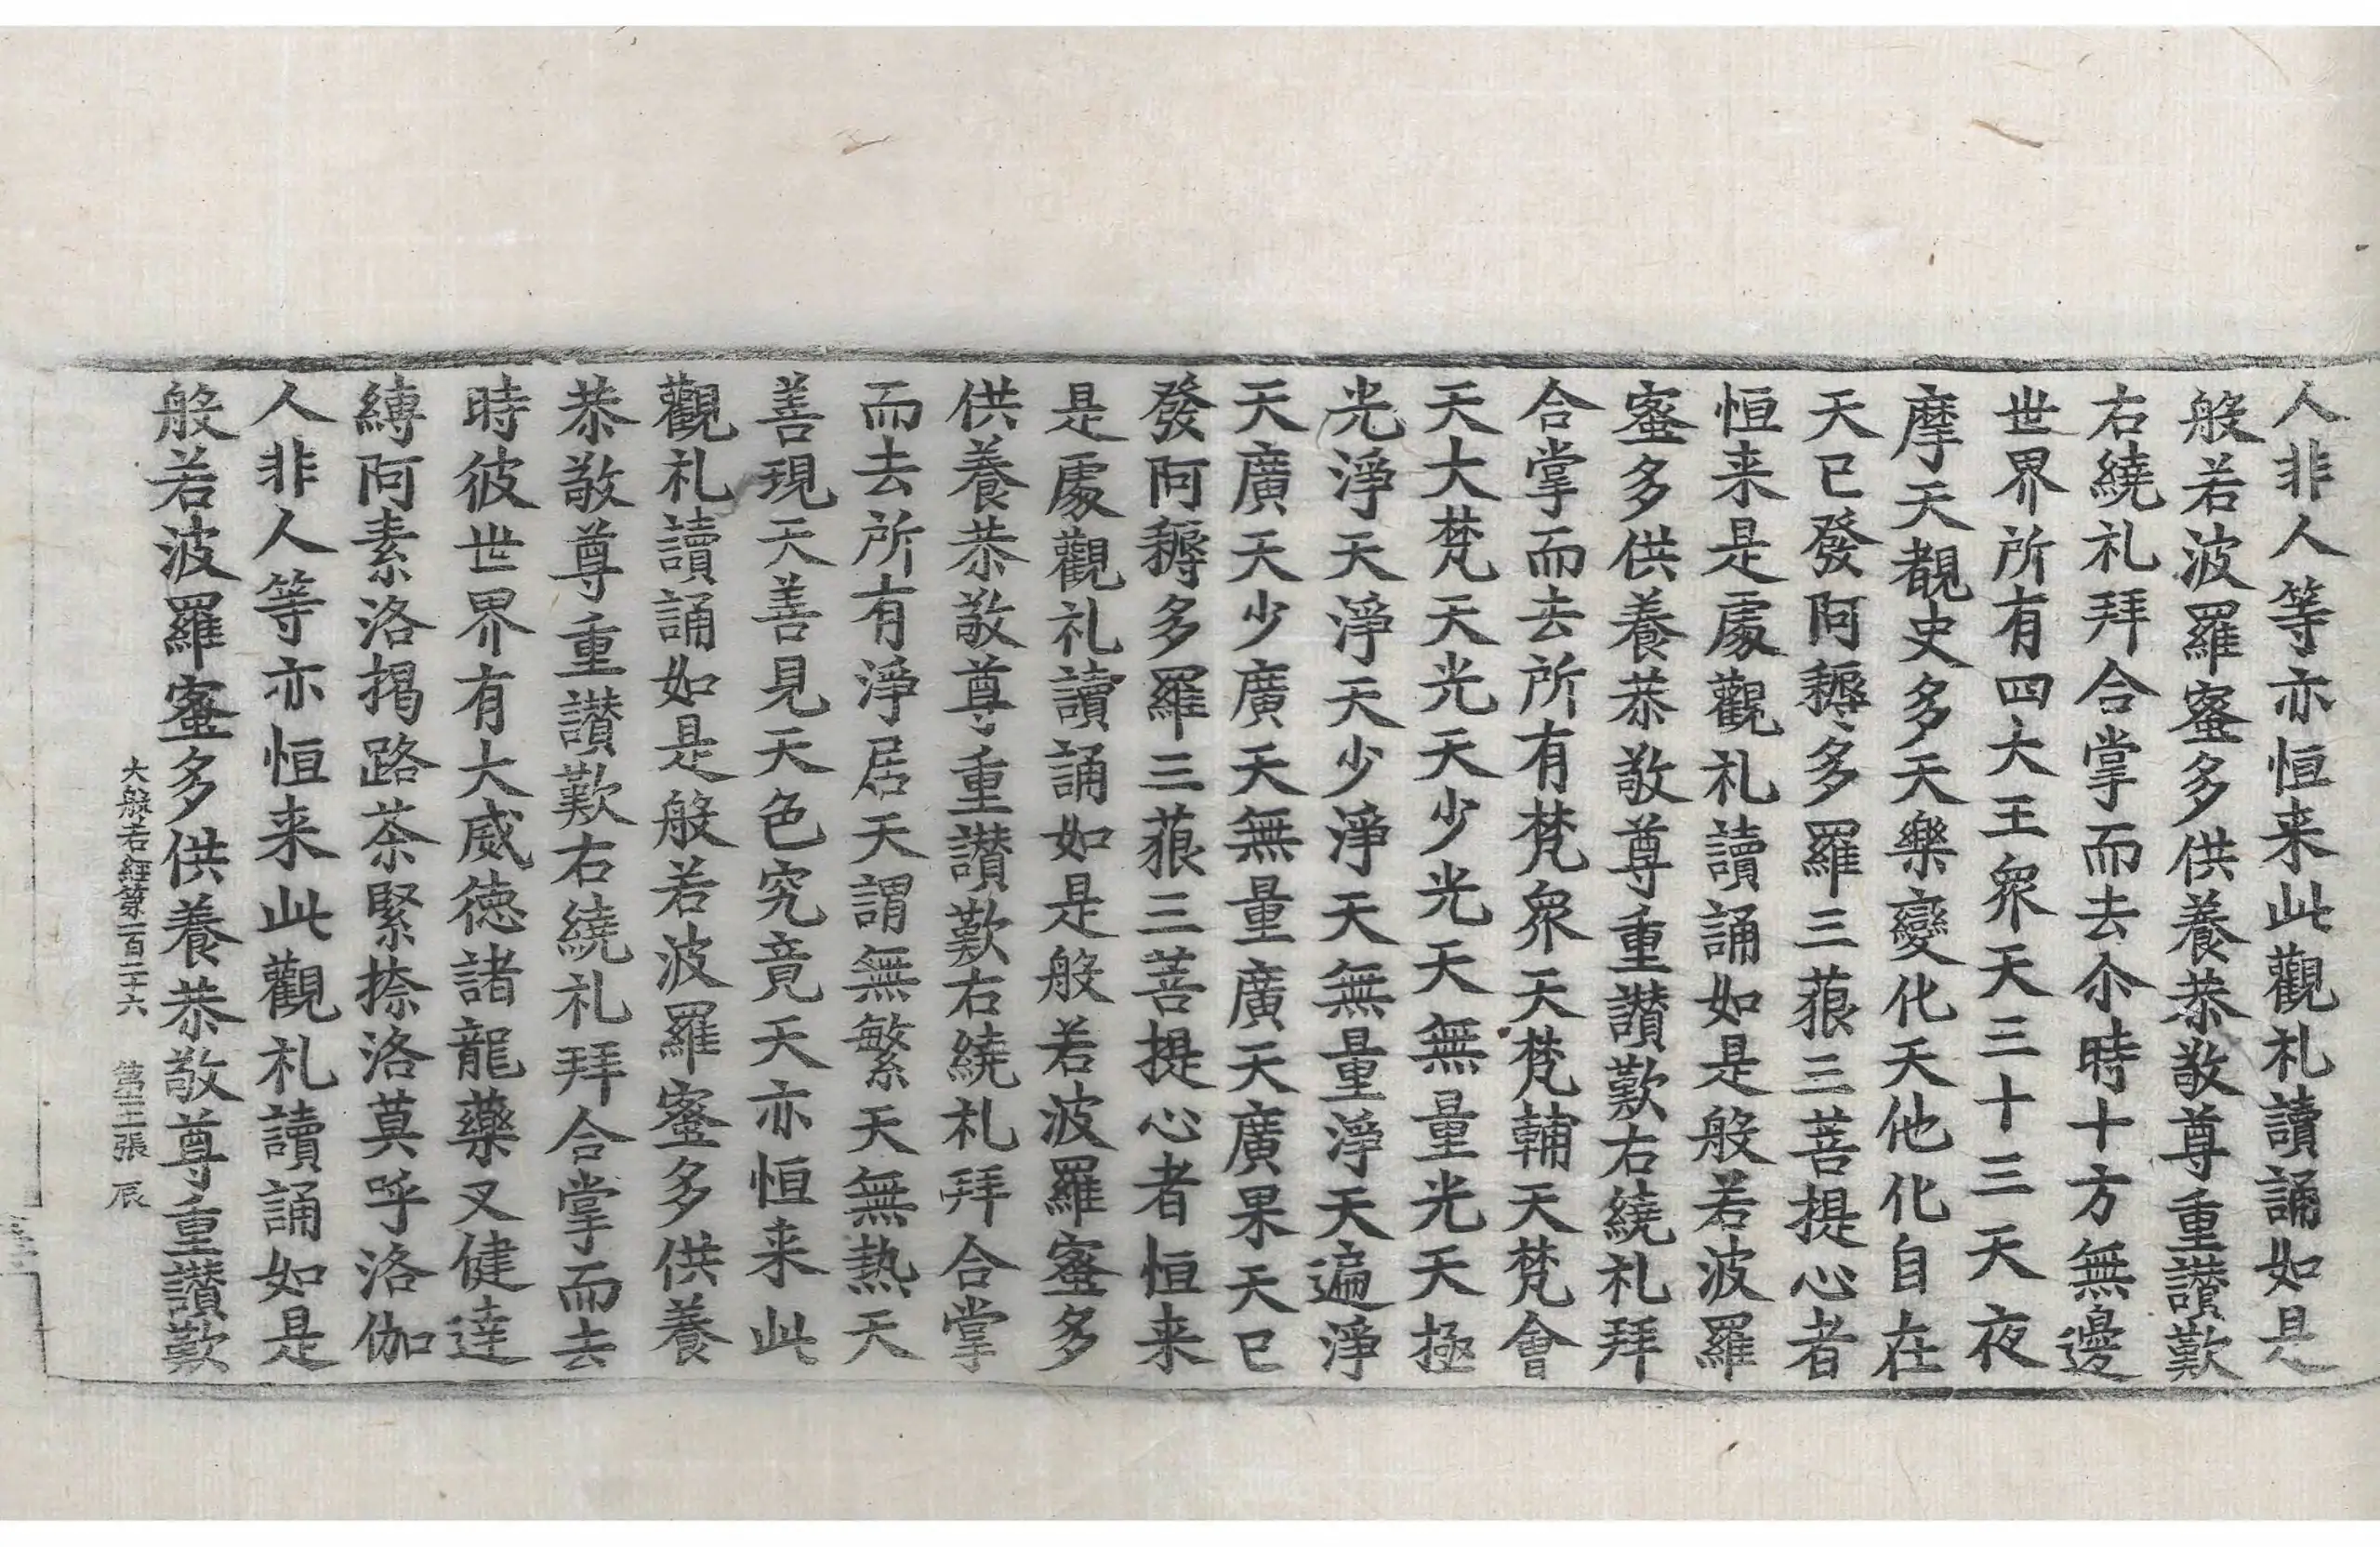 人非人等亦恒来此觀礼讀誦如是
般若波羅蜜多供養恭敬尊重讃歎
右繞礼拜合掌而去尒時十方無邊
世界所有四大王衆天三十三天夜
摩天覩史多天樂變化天他化自在
天已發阿耨多羅三藐三菩提心者
恒来是處觀礼讀誦如是般若波羅
蜜多供養恭敬尊重讃歎右繞礼拜
合掌而去所有梵衆天梵輔天梵會
天大梵天光天少光天無量光天極
光淨天淨天少淨天無量淨天遍淨
天廣天少廣天無量廣天廣果天已
發阿耨多羅三藐三菩提心者恒来
是處觀礼讀誦如是般若波羅蜜多
供養恭敬尊重讃歎右繞礼拜合掌
而去所有淨居天謂無繁天無熱天
善現天善見天色究竟天亦恒来此
觀礼讀誦如是般若波羅蜜多供養
恭敬尊重讃歎右繞礼拜合掌而去
時彼世界有大威徳諸龍藥叉健達
縛阿素洛揭路荼緊捺洛莫呼洛伽
人非人等亦恒来此觀礼讀誦如是
般若波羅蜜多供養恭敬尊重讃歎
大般若經第一百二十六 第三張 辰